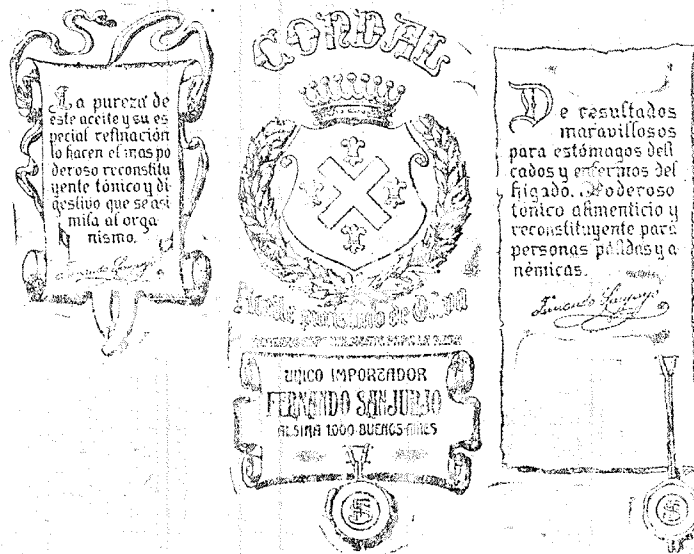 La pureza de
este aceite y su es
pecial refinación
lo hacen el mas po
deroso reconstitu
yente tónico y di
gestivo que se asi
mila al orga
nismo.
CONDAL
Aceite purísimo de Oliva
UNICO IMPORTADOR
FERNANDO SANJURJO
ALSINA 1000 BUENOS-AIRES
De resultados
maravillosos
para estómagos deli
cados y enfermos del
hígado. Poderoso
tónico alimenticio y
reconstituyente para
personas pálidas y a
némicas.